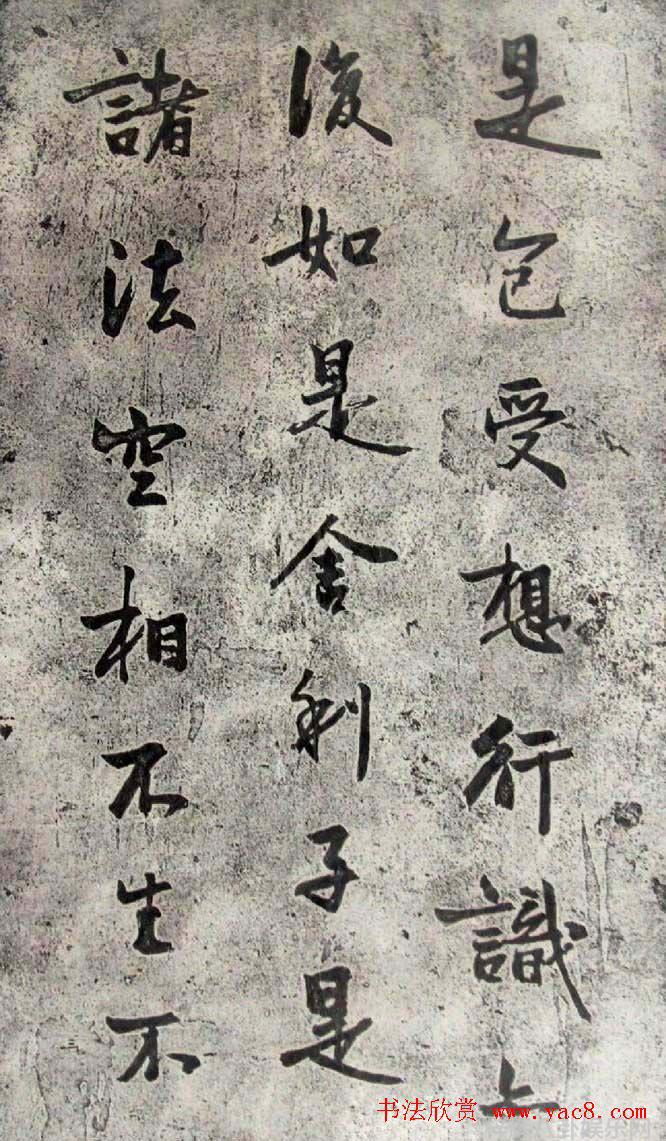 是色受想行識亦
復如是舍利子是
諸法空相不生不
书法欣赏 www.yac8.com